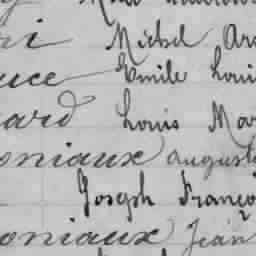 Michel
Emile Loui
ard Louis Mar
oniaux August
Joseph Franço
oniaux Jean